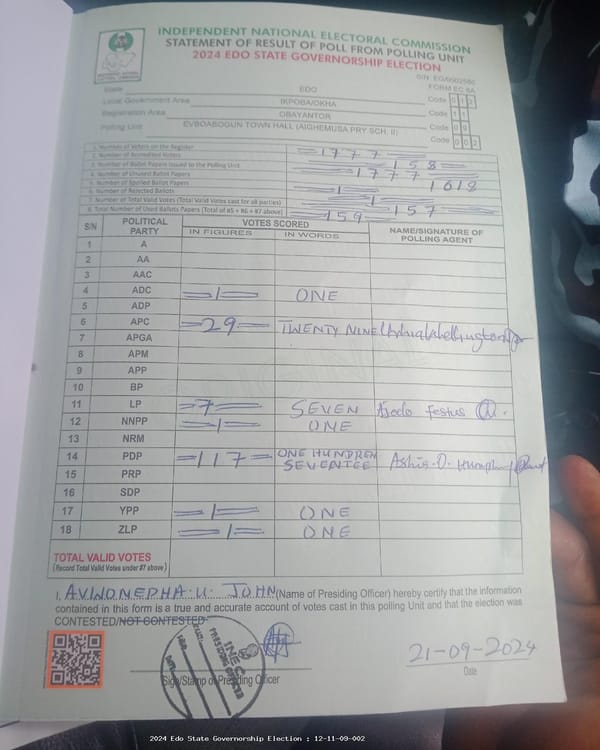 INDEPENDENT NATIONAL ELECTORAL COMMISSION
STATEMENT OF RESULT OF POLL FROM POLLING UNIT
2024 EDO STATE GOVERNORSHIP ELECTION
FORM EC 8A
State EDO Code 0 1 2
Local Government Area IKPOBA/OKHA Code 1 1
Registration Area OBAYANTOR Code 0 9
Polling Unit EVBOABOGUN TOWN HALL (AIGHEMUSA PRY SCH. II) Code 0 0 2
1. Number of Voters on the Register =1777=
2. Number of Accredited Voters =158=
3. Number of Ballot Papers Issued to the Polling Unit =1777=
4. Number of Unused Ballot Papers 1618
5. Number of Spoiled Ballot Papers =1=
6. Number of Rejected Ballots =1=
7. Number of Total Valid Votes (Total Valid Votes cast for all parties) =157=
8. Total Number of Used Ballots Papers (Total of #5 + #6 + #7 above) =159=
S/N POLITICAL PARTY VOTES SCORED NAME/SIGNATURE OF POLLING AGENT
IN FIGURES IN WORDS
1 A
2 AA
3 AAC
4 ADC =1= ONE
5 ADP
6 APC =29= TWENTY NINE
7 APGA
8 APM
9 APP
10 BP
11 LP =7= SEVEN Festus
12 NNPP =1= ONE
13 NRM
14 PDP =117= ONE HUNDREN SEVENTEE
15 PRP
16 SDP
17 YPP =1= ONE
18 ZLP =1= ONE
TOTAL VALID VOTES
(Record Total Valid Votes under #7 above)
I, AVWONEPHA U. JOHN (Name of Presiding Officer) hereby certify that the information
contained in this form is a true and accurate account of votes cast in this polling Unit and that the election was
CONTESTED/NOT CONTESTED
INEC
PRESIDING OFFICER
Sign/Stamp of Presiding Officer
21-09-2024
Date
2024 Edo State Governorship Election : 12-11-09-002